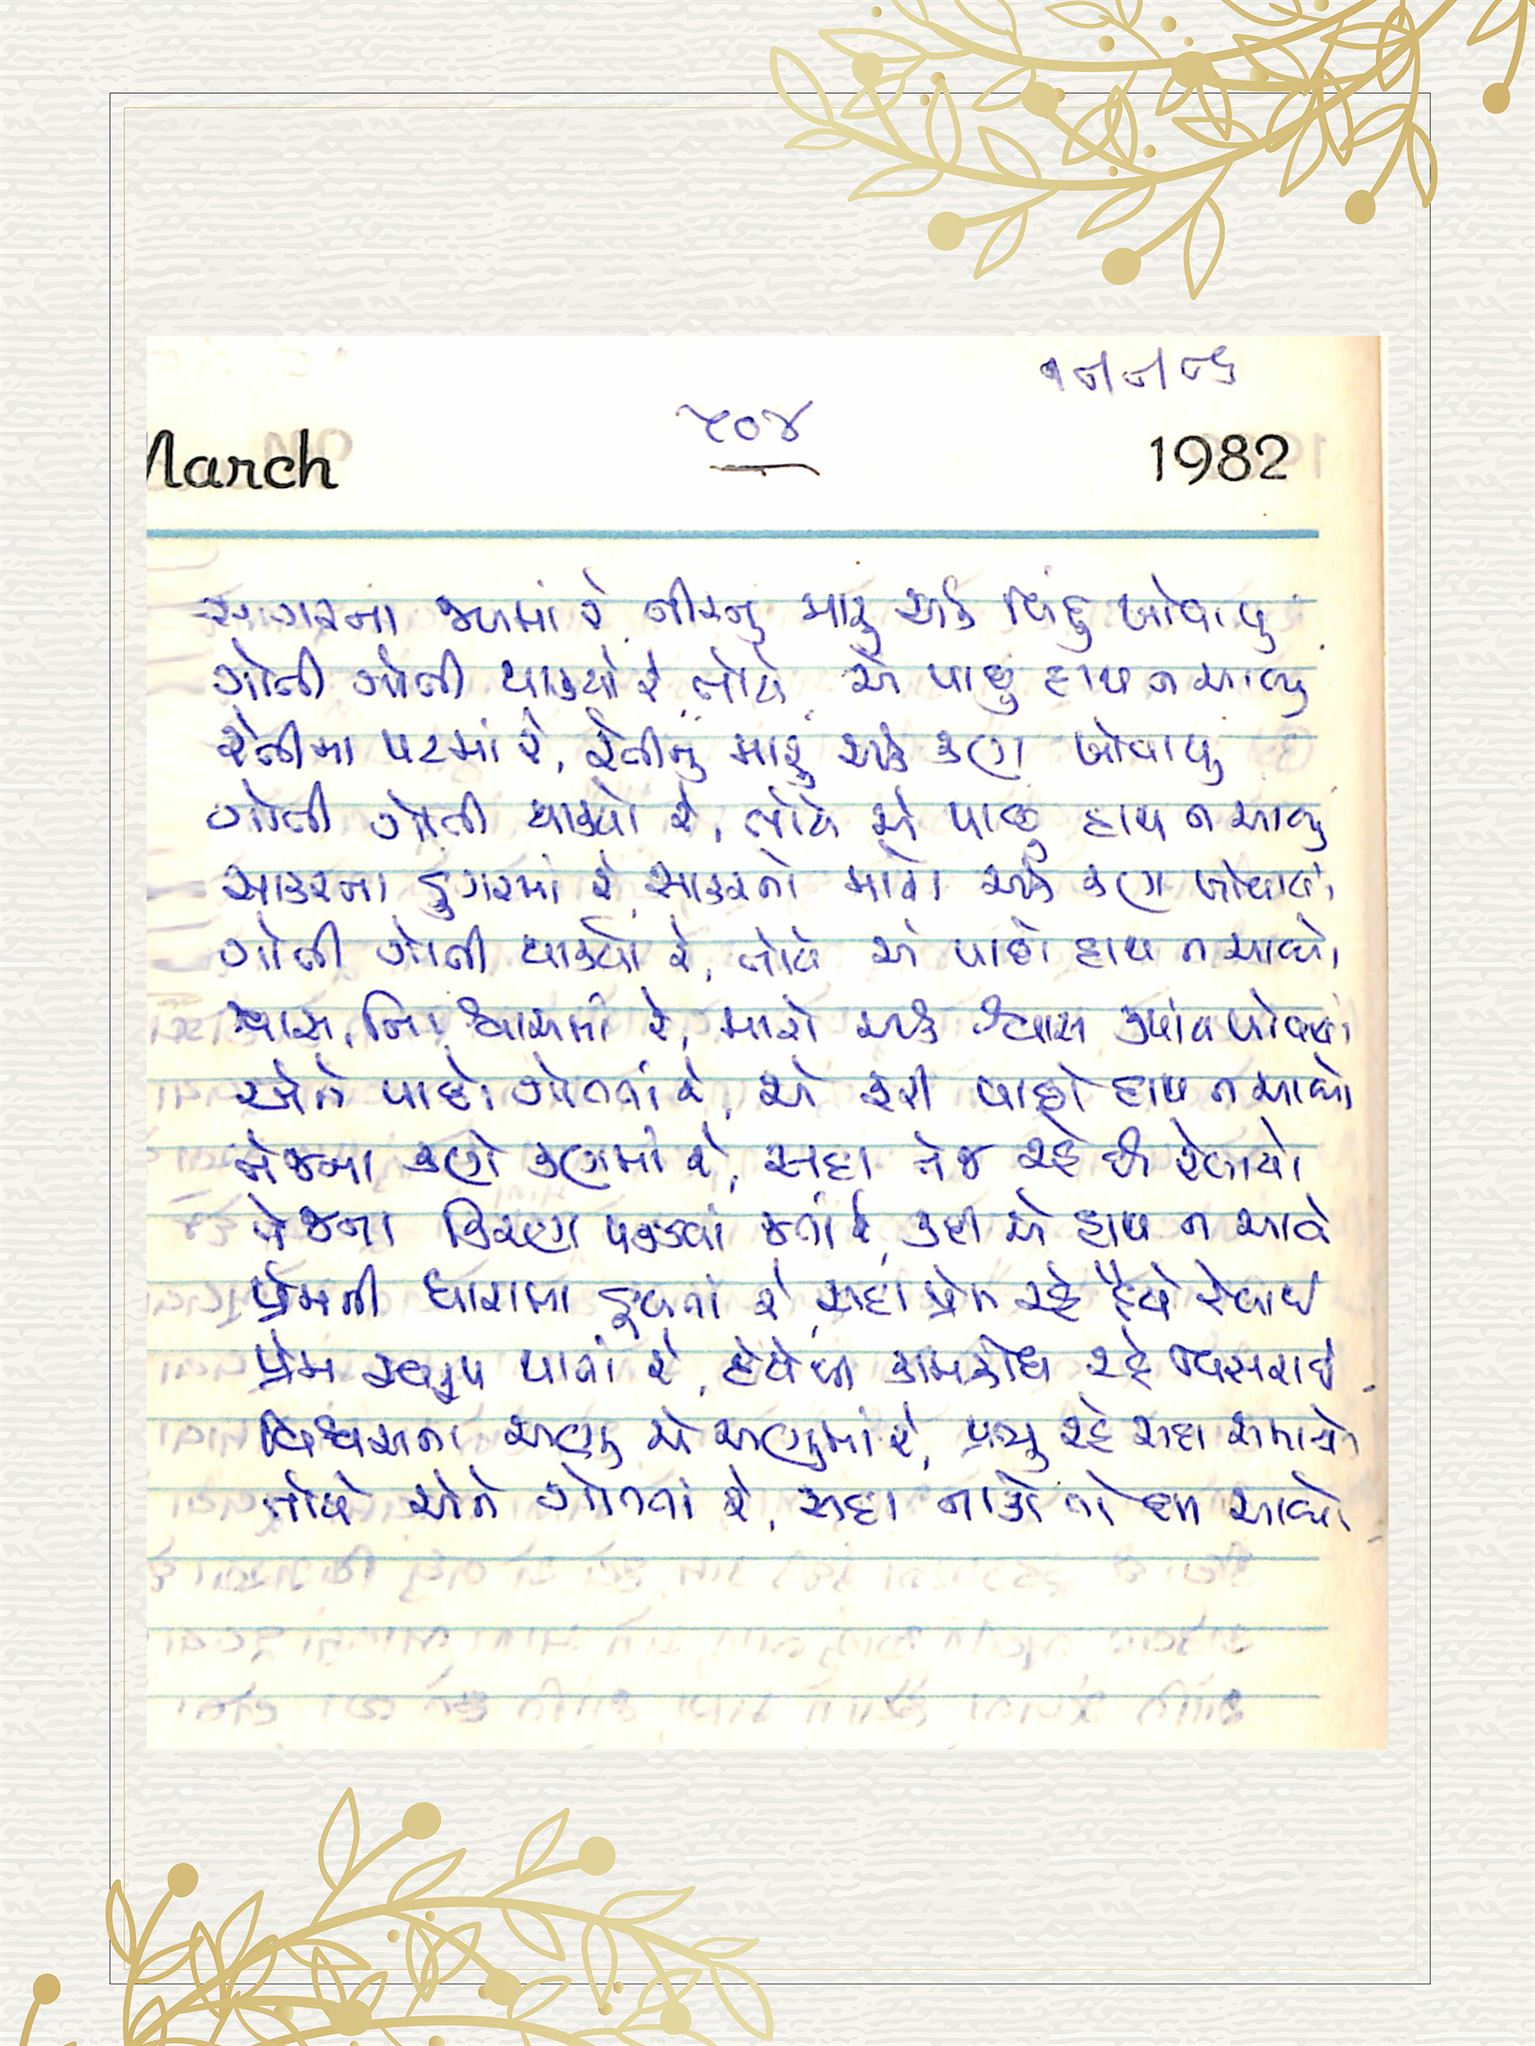 ૧૯/૯/૮૬
૫૦૪
March
1982
સાગરના જળમાં રે નીરનુ મારુ એક બિંદુ ખોવાયુ
ગોતી ગોતી થાક્યો રે તોયે એ પાછું હાથ ન આવ્યુ
રેતીના પટમાં રે, રેતીનુ મારું એક કણ ખોવાયુ
ગોતી ગોતી થાક્યો રે, તોયે એ પાછું હાથ ન આવ્યુ
સાકરના ડુંગરમાં રે સાકરનો મારો એક કણ ખોવાયો
ગોતી ગોતી થાક્યો રે, તોયે એ પાછો હાથ ન આવ્યો
શ્વાસ, નિઃશ્વાસમાં રે, મારો એક શ્વાસ ક્યાંય ખોવાયો
એને પાછો ગોતતાં રે, એ ફરી પાછો હાથ ન આવ્યો
તેજના કણે કણમાં રે, સદા તેજ રહે છે રેલાયો
તેજના કિરણ પકડવાં જતાં રે, કદી એ હાથ ન આવે
પ્રેમની ધારામા ડૂબતાં રે, સદા પ્રેમ રહે હૈયે રેલાઈ
પ્રેમ સ્વરૂપ પાતાં રે, હૈયેથી કામક્રોધ રહે વિસરાઈ
વિશ્વાસના અણુ એ અણુમાં રે, પ્રભુ રહે સદા સમાયો
તોયે એને ગોતતાં રે, સદા નાકે તો દમ આવ્યો